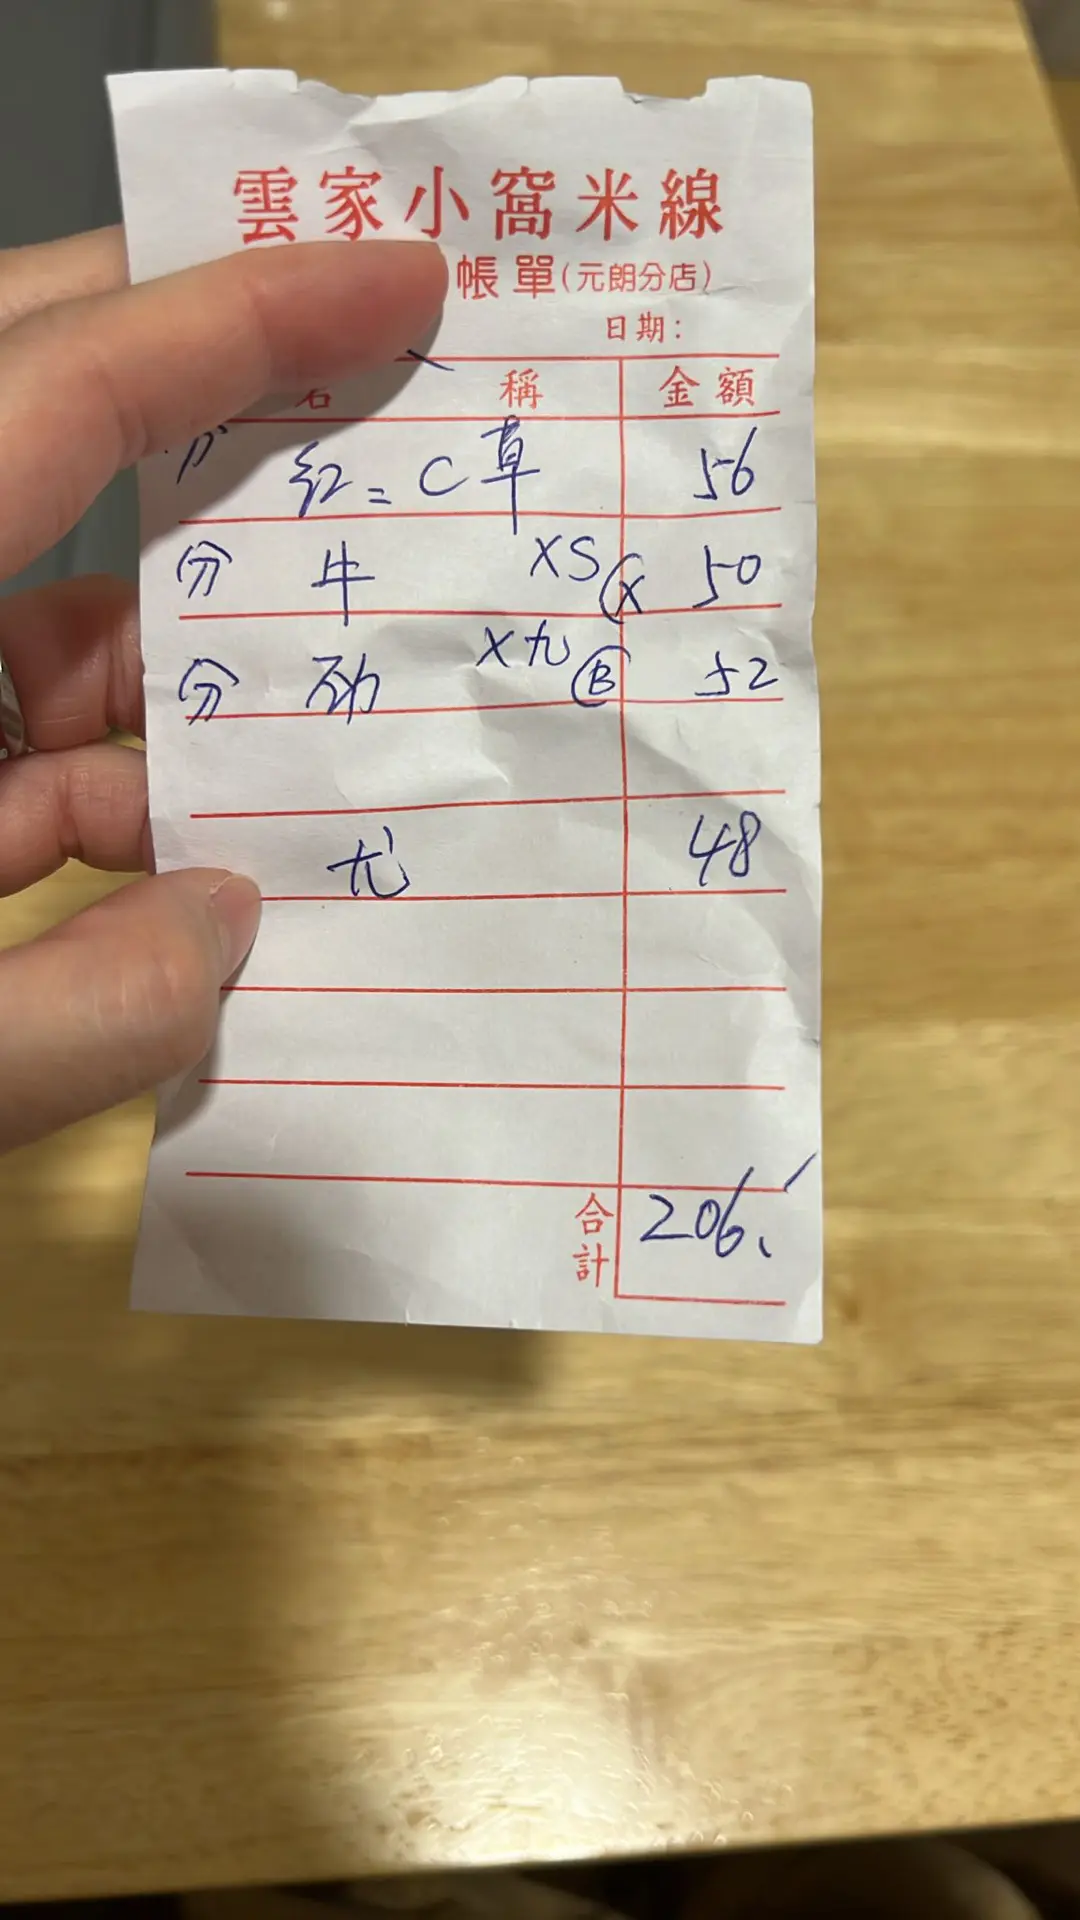 雲家小窩米線
帳單(元朗分店)
日期:
名稱 金額
分 紅= C 草 56
分 牛 XS X 50
分 X九 B 52
尤 48
合計 206